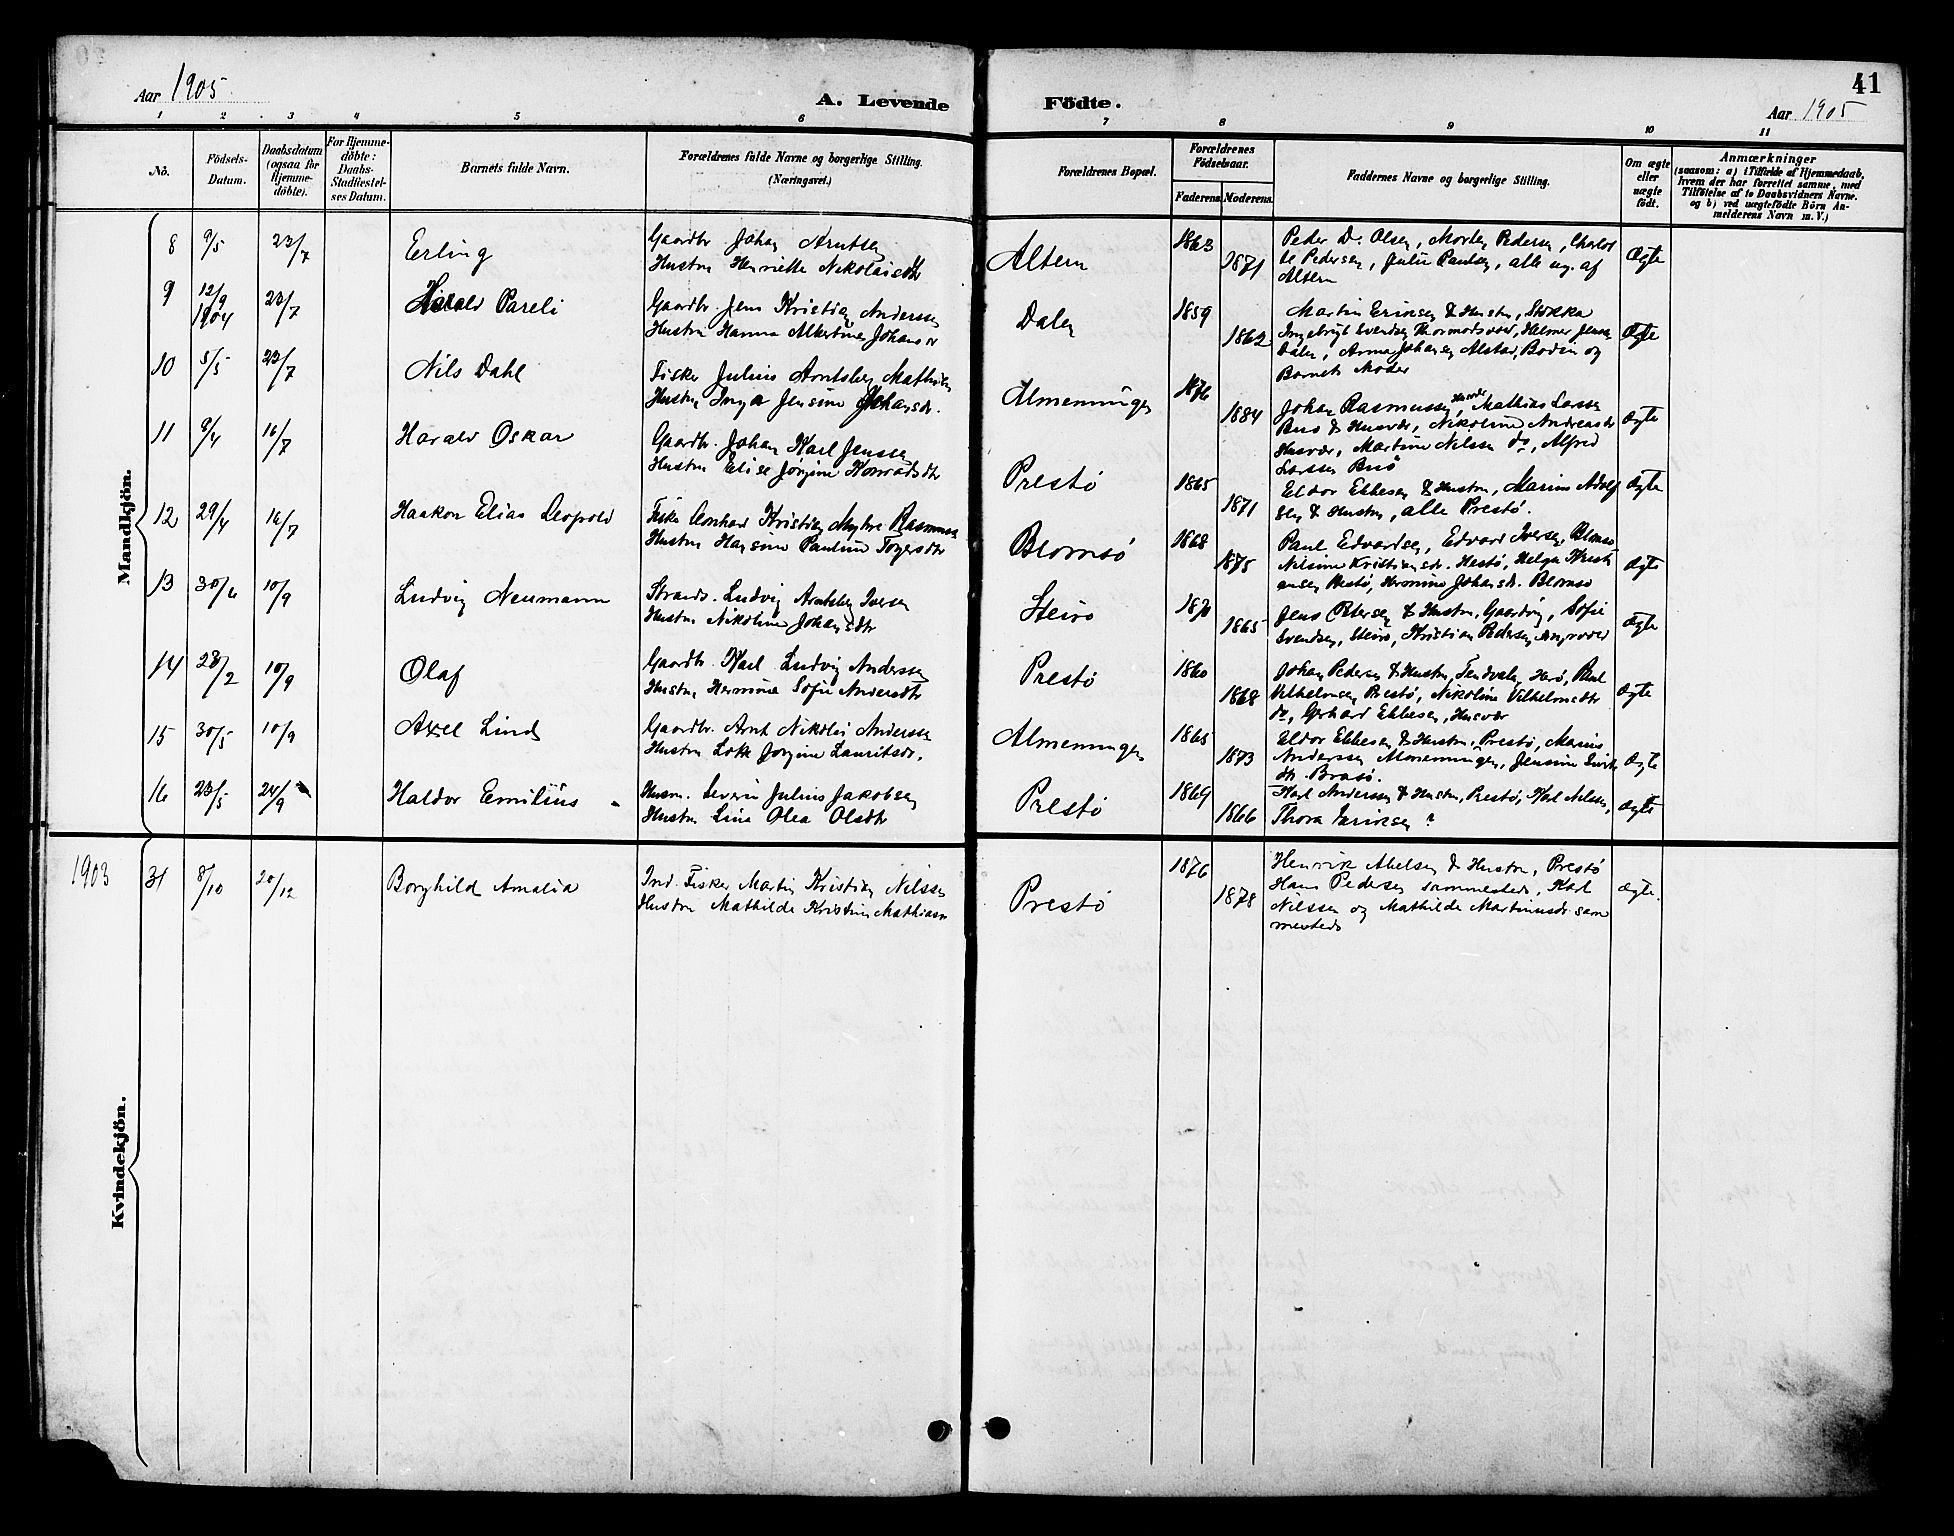 Aar 1905
A. Levende Födte.
41
Aar 1905
1 2 3 4 5 6 7 8 9 10 11
No.
Födsels-Datum.
Daabsdatum (ogsaa for Hjemmedöbte).
For Hjemmedöbte: Daabs-Stadfæstelses Datum.
Barnets fulde Navn.
Forældrenes fulde Navne og borgerlige Stilling.
(Næringsvei.)
Forældrenes Bopæl.
Forældrenes Födselsaar.
Faderens Moderens
Faddernes Navne og borgerlige Stilling.
Om ægte eller uægte födt.
Anmærkninger
(saasom: a) i Tilfælde af Hjemmedaab,
hvem der har forrettet samme, med
Tilföielse af to Daabsvidners Navne.
og b) ved uægtefödte Börn An-
melderens Navn m. V.)
Mandkjön.
8 9/5 23/7 Erling
Gaardbr Johan Arntsen
Hustru Henriette Nikolaisdtr
Altern 1863 1871
Peder D. Olsen, Morten Pedersen, Charlot
te Pedersen, Julie Paulsen, alle ug. af
Altern
Ægte
9 12/9 1904 23/7 Harald Pareli
Gaardbr. Jens Kristian Anderssen
Hustru Hanna Albertine Johansdr
Dalen 1859 1862
Martin Eriksen & Hustru, Stokka
Ingebrigt Svendsen Thormodsvær, Helmer Jenssen
Dalen, Anna Johansen Alstad, Bodin og
Barnets Moder
Ægte
10 5/5 23/7 Nils Dahl
Fisker Julius Arntsberg
Hustru Inga Jensine Johansdr.
Almenningen 1876 1884
Johan Rasmussen, Mathias Larssen
Brasø & Husvær, Nikoline Andreasdr
Husvær, Martine Nilssen do, Alfred
Larssen
Ægte
11 9/4 16/7 Harald Oskar
Gaardbr. Johan Karl Jenssen
Hustru Elise Jørgine Konradsdtr
Prestø 1865 1871
Eldor Ebbesen & Hustru, Marius Adolf
sen & Hustru, alle Prestø.
Ægte
12 29/4 16/7 Haakon Elias Leopold
Fisker Leonhard Kristian Myhre Rasmussen
Hustru Hansine Pauline Torgersdtr
Blomsø 1868 1875
Paul Edvardsen, Edvard Iversen, Blomsø
Nilsine Kristiansdr. Hestø, Helga Kristi
ansen Hestø, Kronine Johansdr. Blomsø
Ægte
13 30/6 10/9 Ludvig Neumann
Strands. Ludvig Arntsberg Iversen
Hustru Nikoline Johansdtr
Steiro 1870 1865
Jens Petersen & Hustru, Sofie
Svendsen, Steiro, Kristian Pedersen
Ægte
14 28/2 10/9 Olaf
Gaardbr. Karl Ludvig Anderssen
Hustru Hermine Sofie Andersdtr
Prestø 1860 1868
Johan Pedersen & Hustru, Tendvalen, Herø, Paul
Vilhelmsen Prestø, Nikoline Vilhelmsdtr
do, Gerhard Ebbesen, Husvær
Ægte
15 30/5 10/9 Axel Lind
Gaardbr. Arnt Nikolai Anderssen
Hustru Jørgine Lauritsdr.
Almenningen 1865 1873
Eldor Ebbesen & Hustru, Prestø, Marius
Anderssen Almenningen, Jensine
dr. Brasø.
Ægte
16 23/5 24/9 Haldor Emilius
Husm. Severin Julius Jakobsen
Hustru Lina Olea Olsdtr
Prestø 1869 1866
Karl Anderssen & Hustru, Prestø, Karl Nilssen,
Thora Eriksen
Ægte
Kvindekjön.
1903
31 8/10 20/12 Borghild Amalia
Ind. Fisker Martin Kristian Nilssen
Hustru Mathilde Kristine Mathiasdr
Prestø 1876 1878
Henrik Abelsen & Hustru, Prestø
Hans Pedersen sammesteds, Karl
Nilssen og Mathilde Martinusdr sam
mesteds
Ægte.